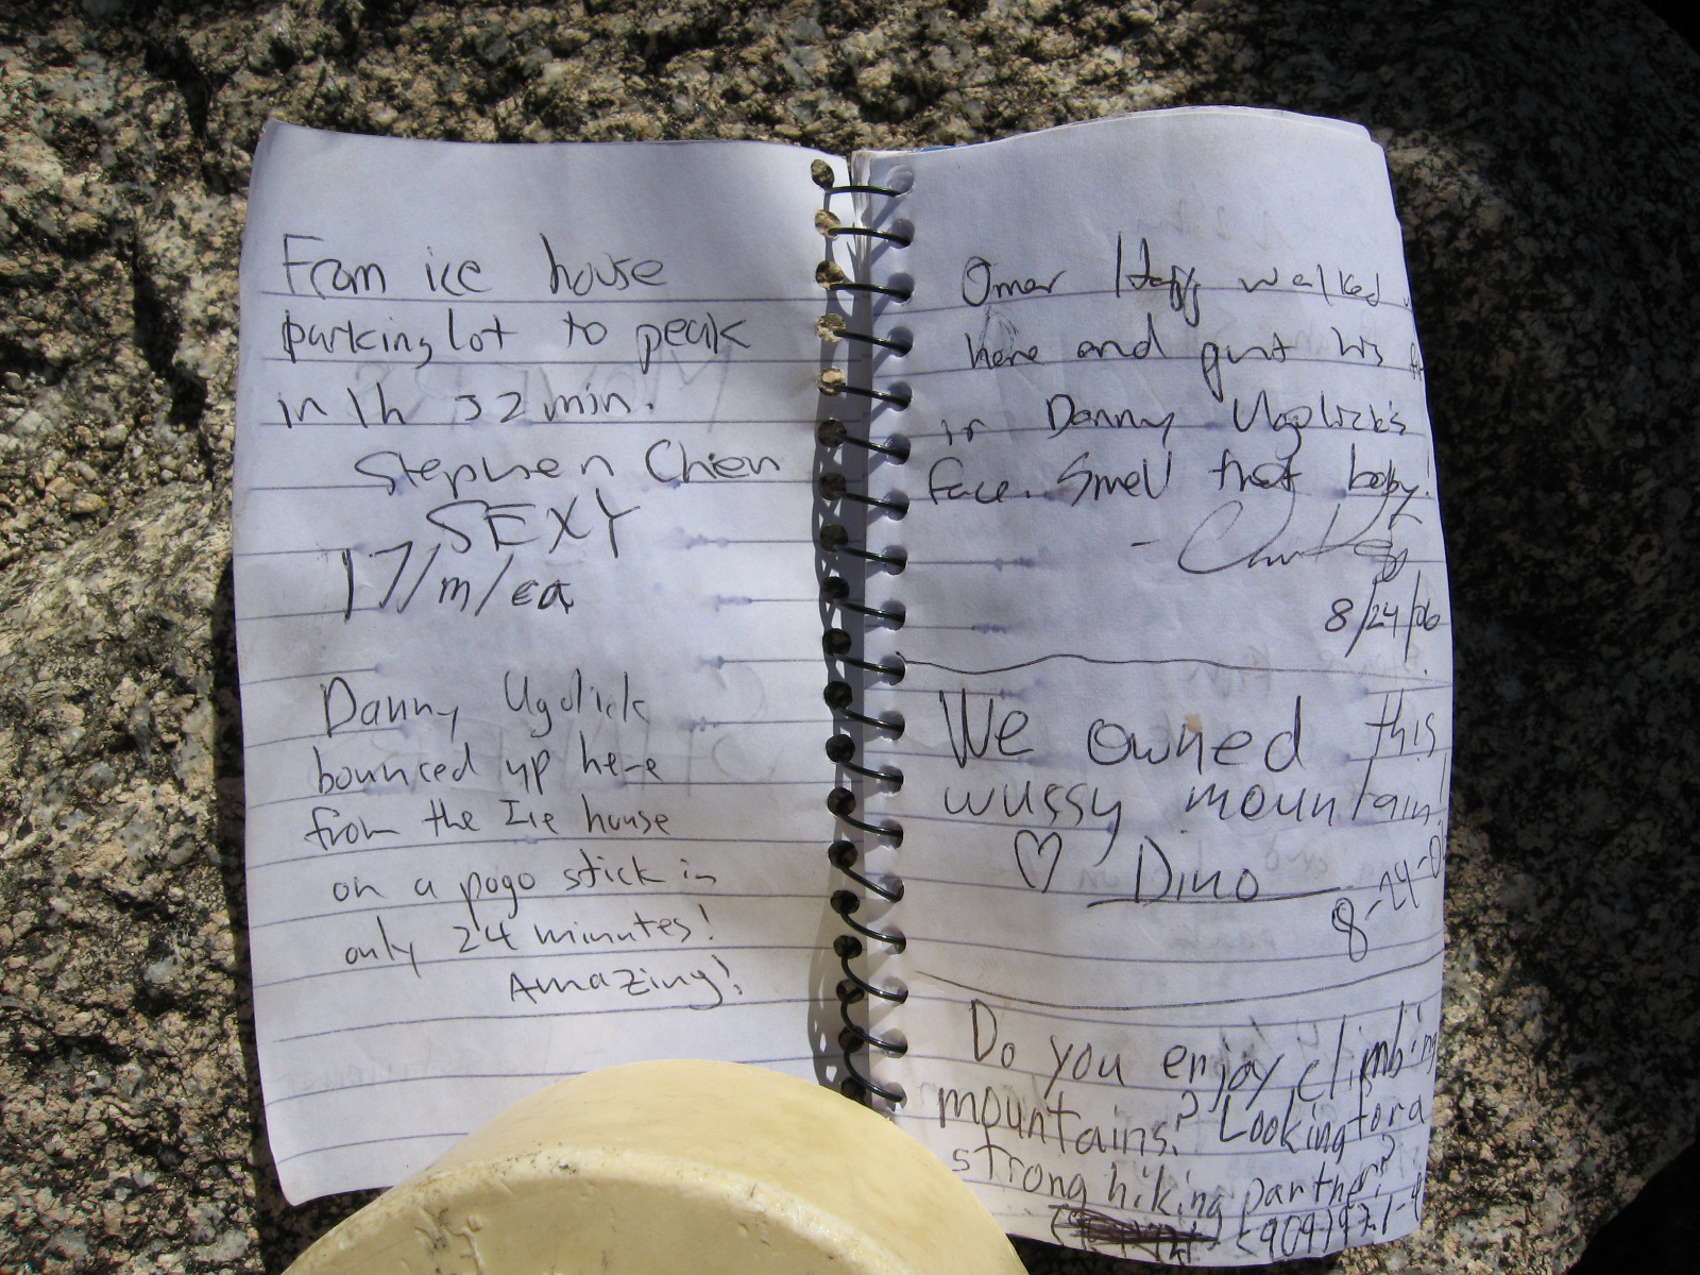 From ice house
parking lot to peak
in 1h 32 min.
Stephen Chien
SEXY
17/m/ca
Danny Ugolick
bounced up here
from the Ice house
on a pogo stick in
only 24 minutes!
Amazing!
Omar walked
here and his
in Danny Ugolick's
face. Smell that baby!
8/24/06
We owned this
wussy mountain!
♡ Dino
8-24-0
Do you enjoy climbing
mountains? Looking for a
strong hiking partner?
(909)